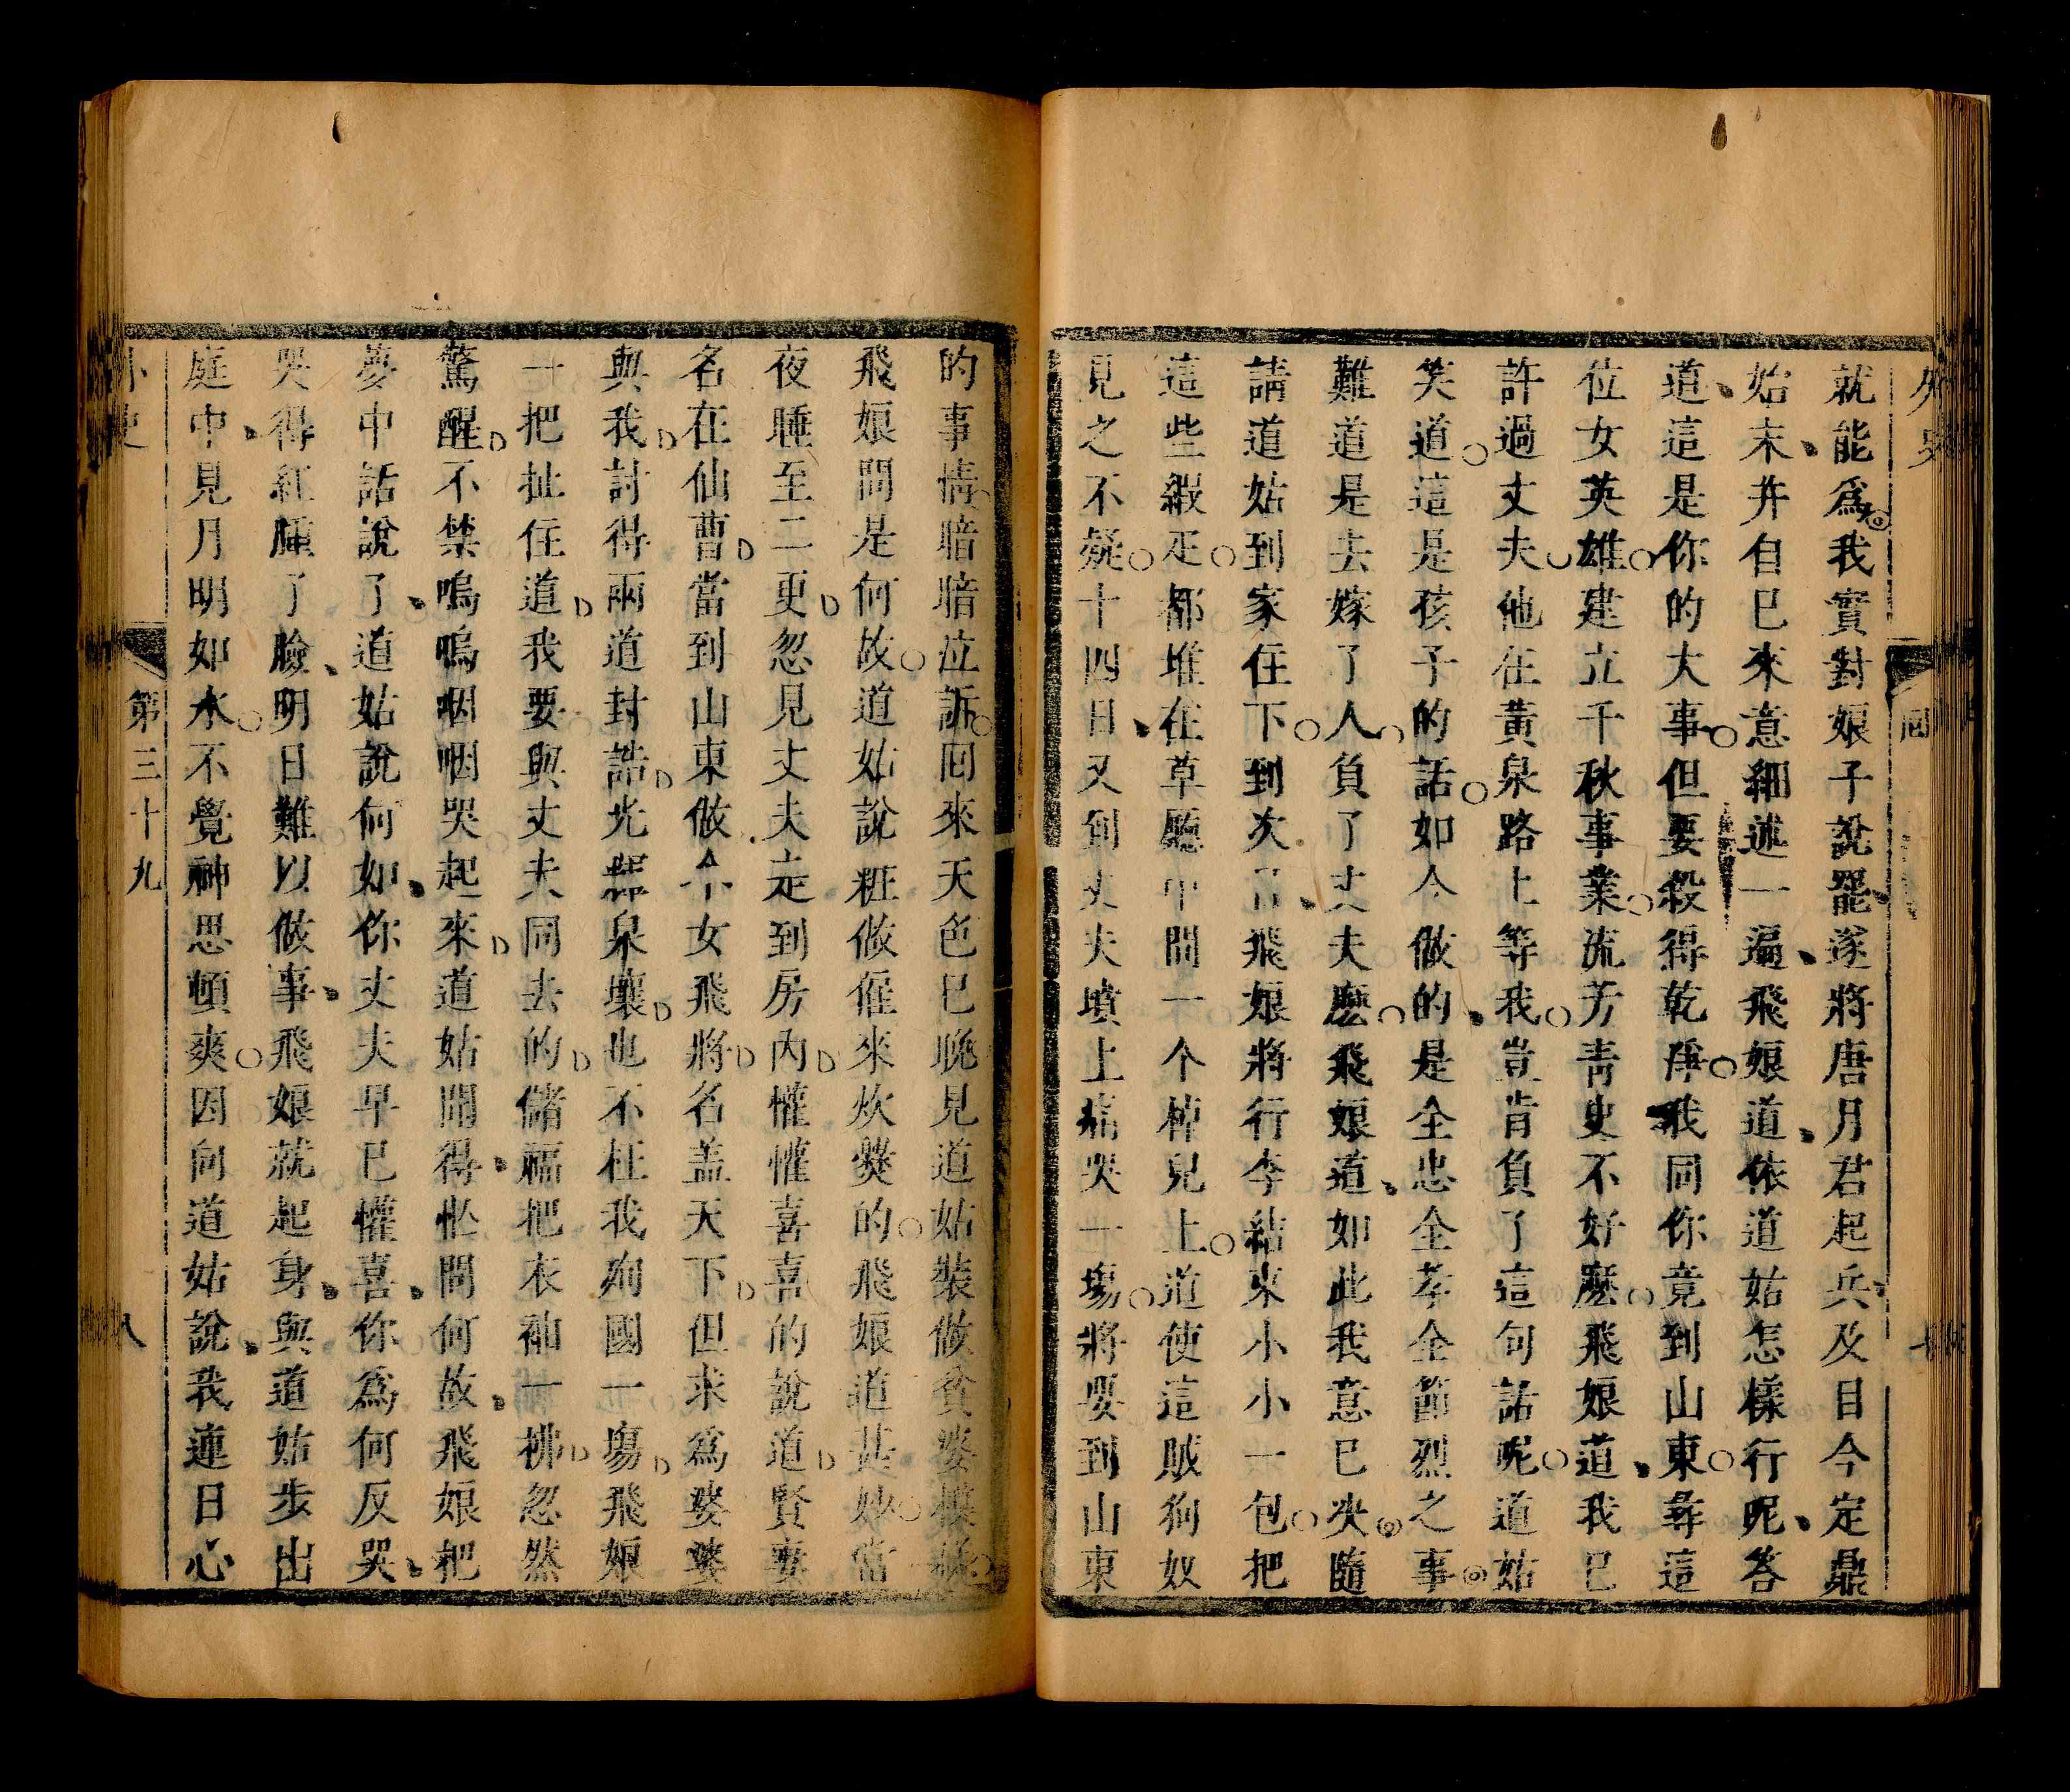 外史
回
七
就能爲我實對娘子說罷遂將唐月君起兵及目今定鼎
始末并自巳來意細述一遍飛娘道依道姑怎樣行呢答
道這是你的大事但要殺得乾淨我同你竟到山東尋這
位女英雄建立千秋事業流芳靑史不好麽飛娘道我巳
許過丈夫他在黃泉路上等我豈肯負了這句話呢道姑
笑道這是孩子的話如今做的是全忠全孝全節烈之事
難道是去嫁了人負了丈夫麽飛娘道如此我意已决隨
請道姑到家住下到次日飛娘將行李結束小小一包把
這些緞疋都堆在草廳中間一个棹兒上道使這賊狗奴
見之不疑十四日又到丈夫墳上痛哭一塲將要到山東
的事情暗暗泣訴回來天色已晚見道姑裝做貧婆模樣
飛娘問是何故道姑說粧做僱來炊爨的飛娘道甚妙當
夜睡至二更忽見丈夫走到房內懽懽喜喜的說道賢妻
名在仙曹當到山東做个女飛將名盖天下但求爲婆婆
與我討得兩道封誥光輝泉壤也不枉我殉國一塲飛娘
一把扯住道我要與丈夫同去的儲福把衣袖一拂忽然
驚醒不禁嗚嗚咽咽哭起來道姑聞得忙問何故飛娘把
夢中話說了道姑說何如你丈夫早已懽喜你爲何反哭
哭得紅腫了臉明日難以做事飛娘就起身與道姑步出
庭中見月明如水不覺神思頓爽因向道姑說我連日心
外史
第三十九
八